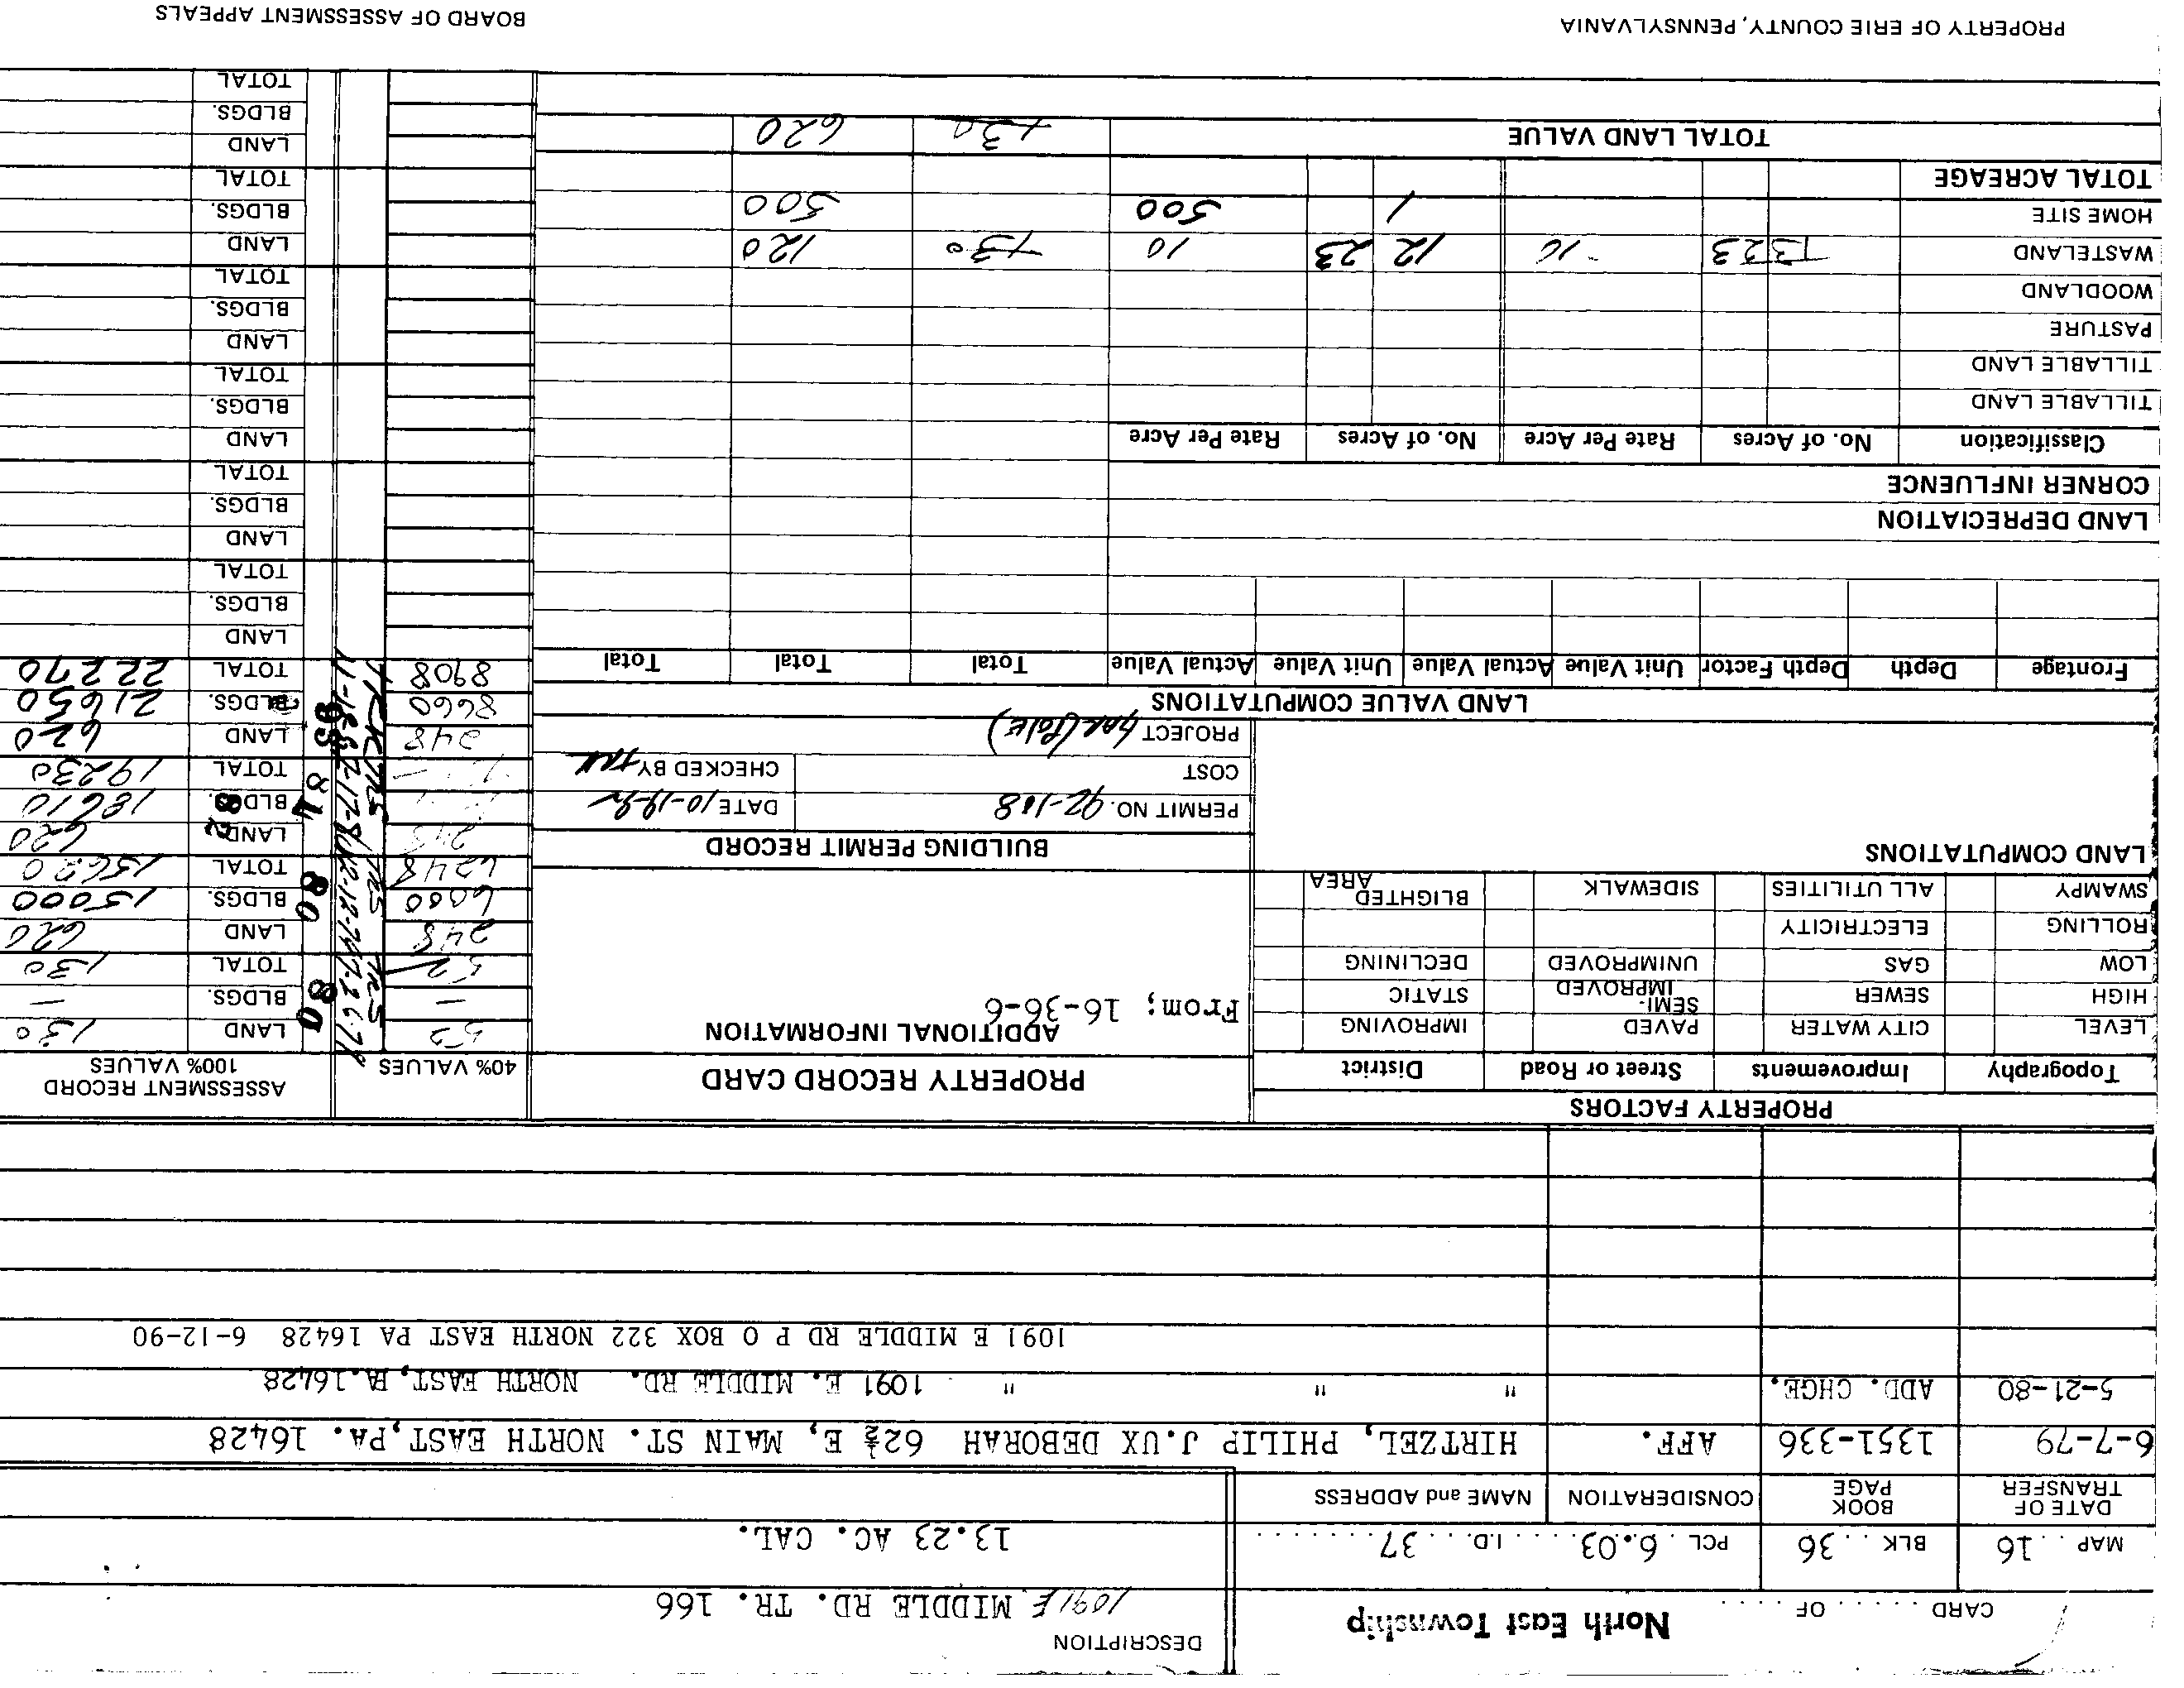 CARD ..... OF ....
North East Township
DESCRIPTION
1091 E MIDDLE RD. TR. 166
MAP .. 16 BLK ... 36 PCL . 6.03 ..... I.D. ... 37
13.23 AC. CAL.
DATE OF TRANSFER BOOK PAGE CONSIDERATION NAME and ADDRESS
6-7-79 1351-336 AFF. HIRTZEL, PHILIP J.UX DEBORAH 62½ E, MAIN ST. NORTH EAST,PA. 16428
5-21-80 ADD. CHGE. " " " 1091 E. MIDDLE RD. NORTH EAST, PA.16428
1091 E MIDDLE RD P O BOX 322 NORTH EAST PA 16428 6-12-90
PROPERTY FACTORS
Topography Improvements Street or Road District
LEVEL CITY WATER PAVED IMPROVING
HIGH SEWER SEMI-IMPROVED STATIC
LOW GAS UNIMPROVED DECLINING
ROLLING ELECTRICITY
SWAMPY ALL UTILITIES SIDEWALK BLIGHTED AREA
LAND COMPUTATIONS
PROPERTY RECORD CARD
ADDITIONAL INFORMATION
From; 16-36-6
BUILDING PERMIT RECORD
PERMIT NO. 92-168 DATE 10-19-92
COST CHECKED BY
PROJECT gar (Pole)
40% VALUES ASSESSMENT RECORD 100% VALUES
52 LAND 130
— BLDGS. —
52 TOTAL 130
80
248 LAND 620
6000 BLDGS. 15000
6248 TOTAL 15620
80
248 LAND 620
BLDGS. 18610
TOTAL 19230
81 82
248 LAND 620
8660 BLDGS. 21650
8908 TOTAL 22270
83
LAND
BLDGS.
TOTAL
LAND
BLDGS.
TOTAL
LAND
BLDGS.
TOTAL
LAND
BLDGS.
TOTAL
LAND
BLDGS.
TOTAL
LAND
BLDGS.
TOTAL
LAND VALUE COMPUTATIONS
Frontage Depth Depth Factor Unit Value Actual Value Unit Value Actual Value Total Total Total
LAND DEPRECIATION
CORNER INFLUENCE
Classification No. of Acres Rate Per Acre No. of Acres Rate Per Acre
TILLABLE LAND
TILLABLE LAND
PASTURE
WOODLAND
WASTELAND 13 23 10 12 23 10 130 120
HOME SITE 1 500 500
TOTAL ACREAGE
TOTAL LAND VALUE 130 620
PROPERTY OF ERIE COUNTY, PENNSYLVANIA
BOARD OF ASSESSMENT APPEALS